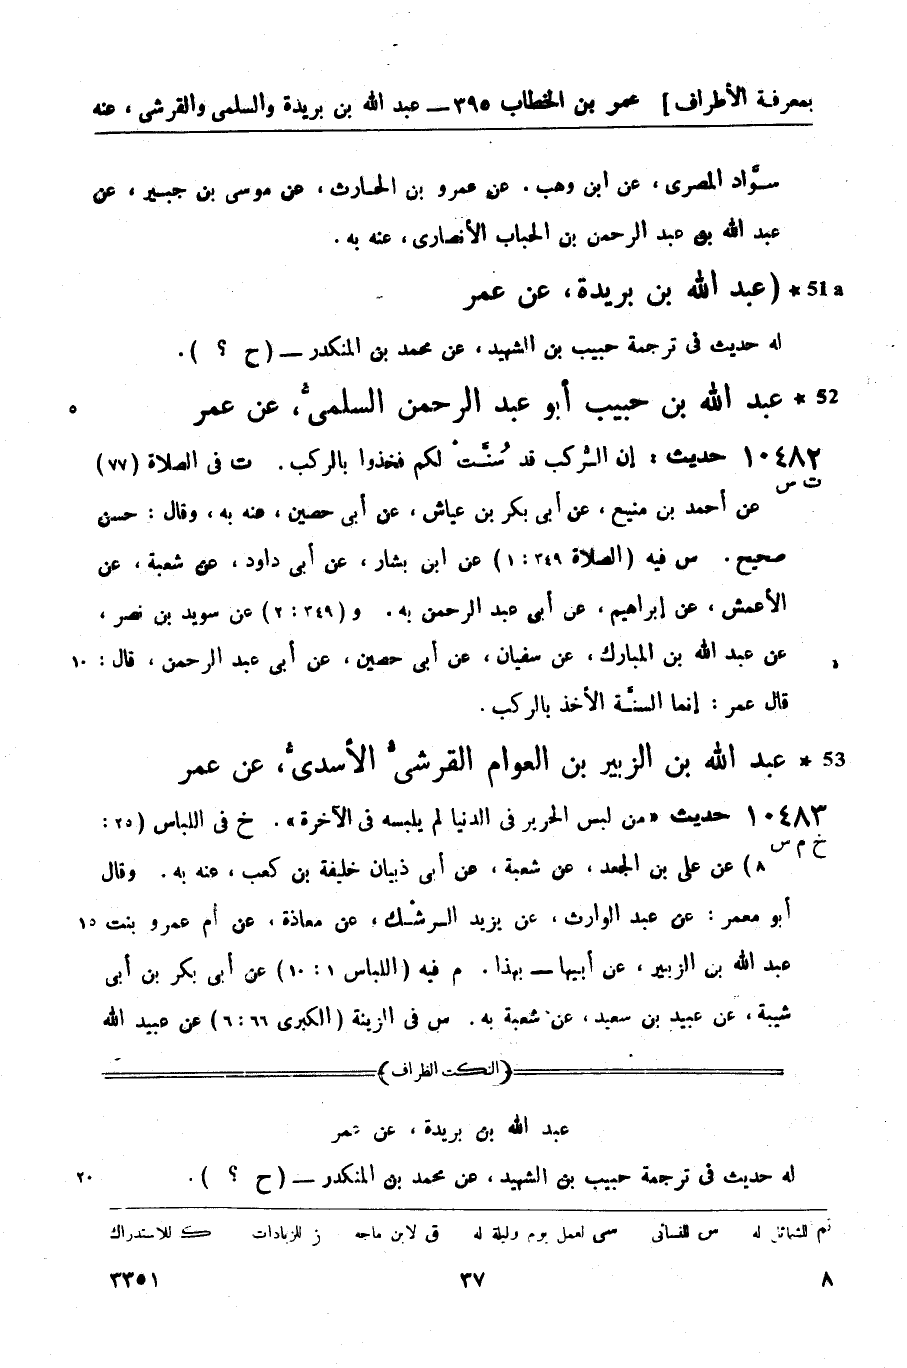 بمعرفة الأطراف] عمر بن الخطاب ٣٩٥ — عبد الله بن بريدة والسلمى والقرشى ، عنه
سوَّاد المصرى ، عن ابن وهب . عن عمرو بن الحارث ، عن موسى بن جبير ، عن
عبد الله بن عبد الرحمن بن الحباب الأنصارى ، عنه به .
51a * (عبد الله بن بريدة ، عن عمر
له حديث فى ترجمة حبيب بن الشهيد ، عن محمد بن المنكدر — (ح ؟ ) .
52 * عبد الله بن حبيب أبو عبد الرحمن السلمىُّ ، عن عمر ٥
١٠٤٨٢ حديث : إن الرُّكب قد سُنَّتْ لكم فخذوا بالركب . ت فى الصلاة (٧٧)
ت س
عن أحمد بن منيع ، عن أبى بكر بن عياش ، عن أبى حصين ، عنه به ، وقال : حسن
صحيح . س فيه (الصلاة ٣٤٩ : ١) عن ابن بشار ، عن أبى داود ، عن شعبة ، عن
الأعمش ، عن إبراهيم ، عن أبى عبد الرحمن به . و (٣٤٩ : ٢) عن سويد بن نصر ،
عن عبد الله بن المبارك ، عن سفيان ، عن أبى حصين ، عن أبى عبد الرحمن ، قال : ١٠
قال عمر : إنما السنَّة الأخذ بالركب .
53 * عبد الله بن الزبير بن العوام القرشىُّ الأسدىُّ ، عن عمر
١٠٤٨٣ حديث «من لبس الحرير فى الدنيا لم يلبسه فى الآخرة» . خ فى اللباس (٢٥ :
خ م س
٨) عن على بن الجعد ، عن شعبة ، عن أبى ذبيان خليفة بن كعب ، عنه به . وقال
أبو معمر : عن عبد الوارث ، عن يزيد الرشْك ، عن معاذة ، عن أم عمرو بنت ١٥
عبد الله بن الزبير ، عن أبيها — بهذا . م فيه (اللباس ١ : ١٠) عن أبى بكر بن أبى
شيبة ، عن عبيد بن سعيد ، عن شعبة به . س فى الزينة (الكبرى ٦٦ : ٦) عن عبيد الله
(النكت الظراف)
عبد الله بن بريدة ، عن عمر
له حديث فى ترجمة حبيب بن الشهيد ، عن محمد بن المنكدر — (ح ؟ ) . ٢٠
تم للشمائل له س للنسائى سى لعمل يوم وليلة له ق لابن ماجه ز للزيادات ك للاستدراك
٨ ٣٧ ٣٣٥١